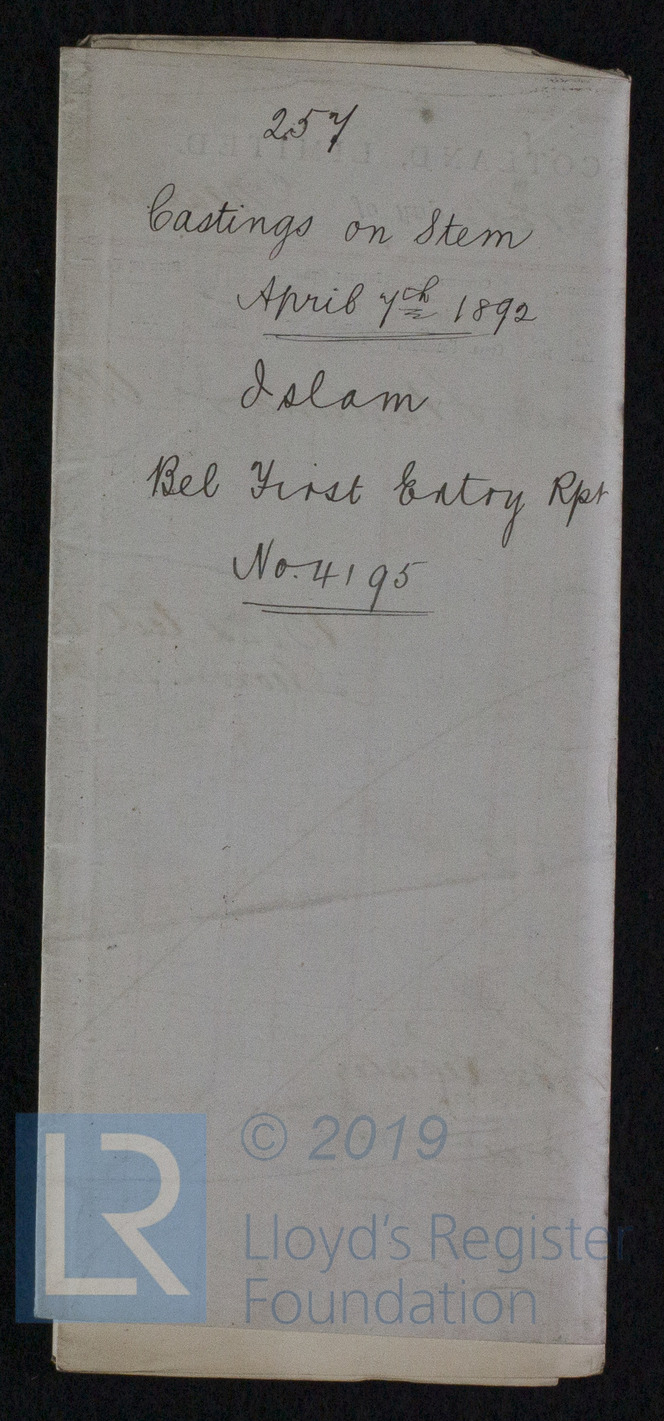 257
Castings on Stem
April 7th 1892
Islam
Bel First Entry Rpt
No. 4195
LR
© 2019
Lloyd's Register
Foundation